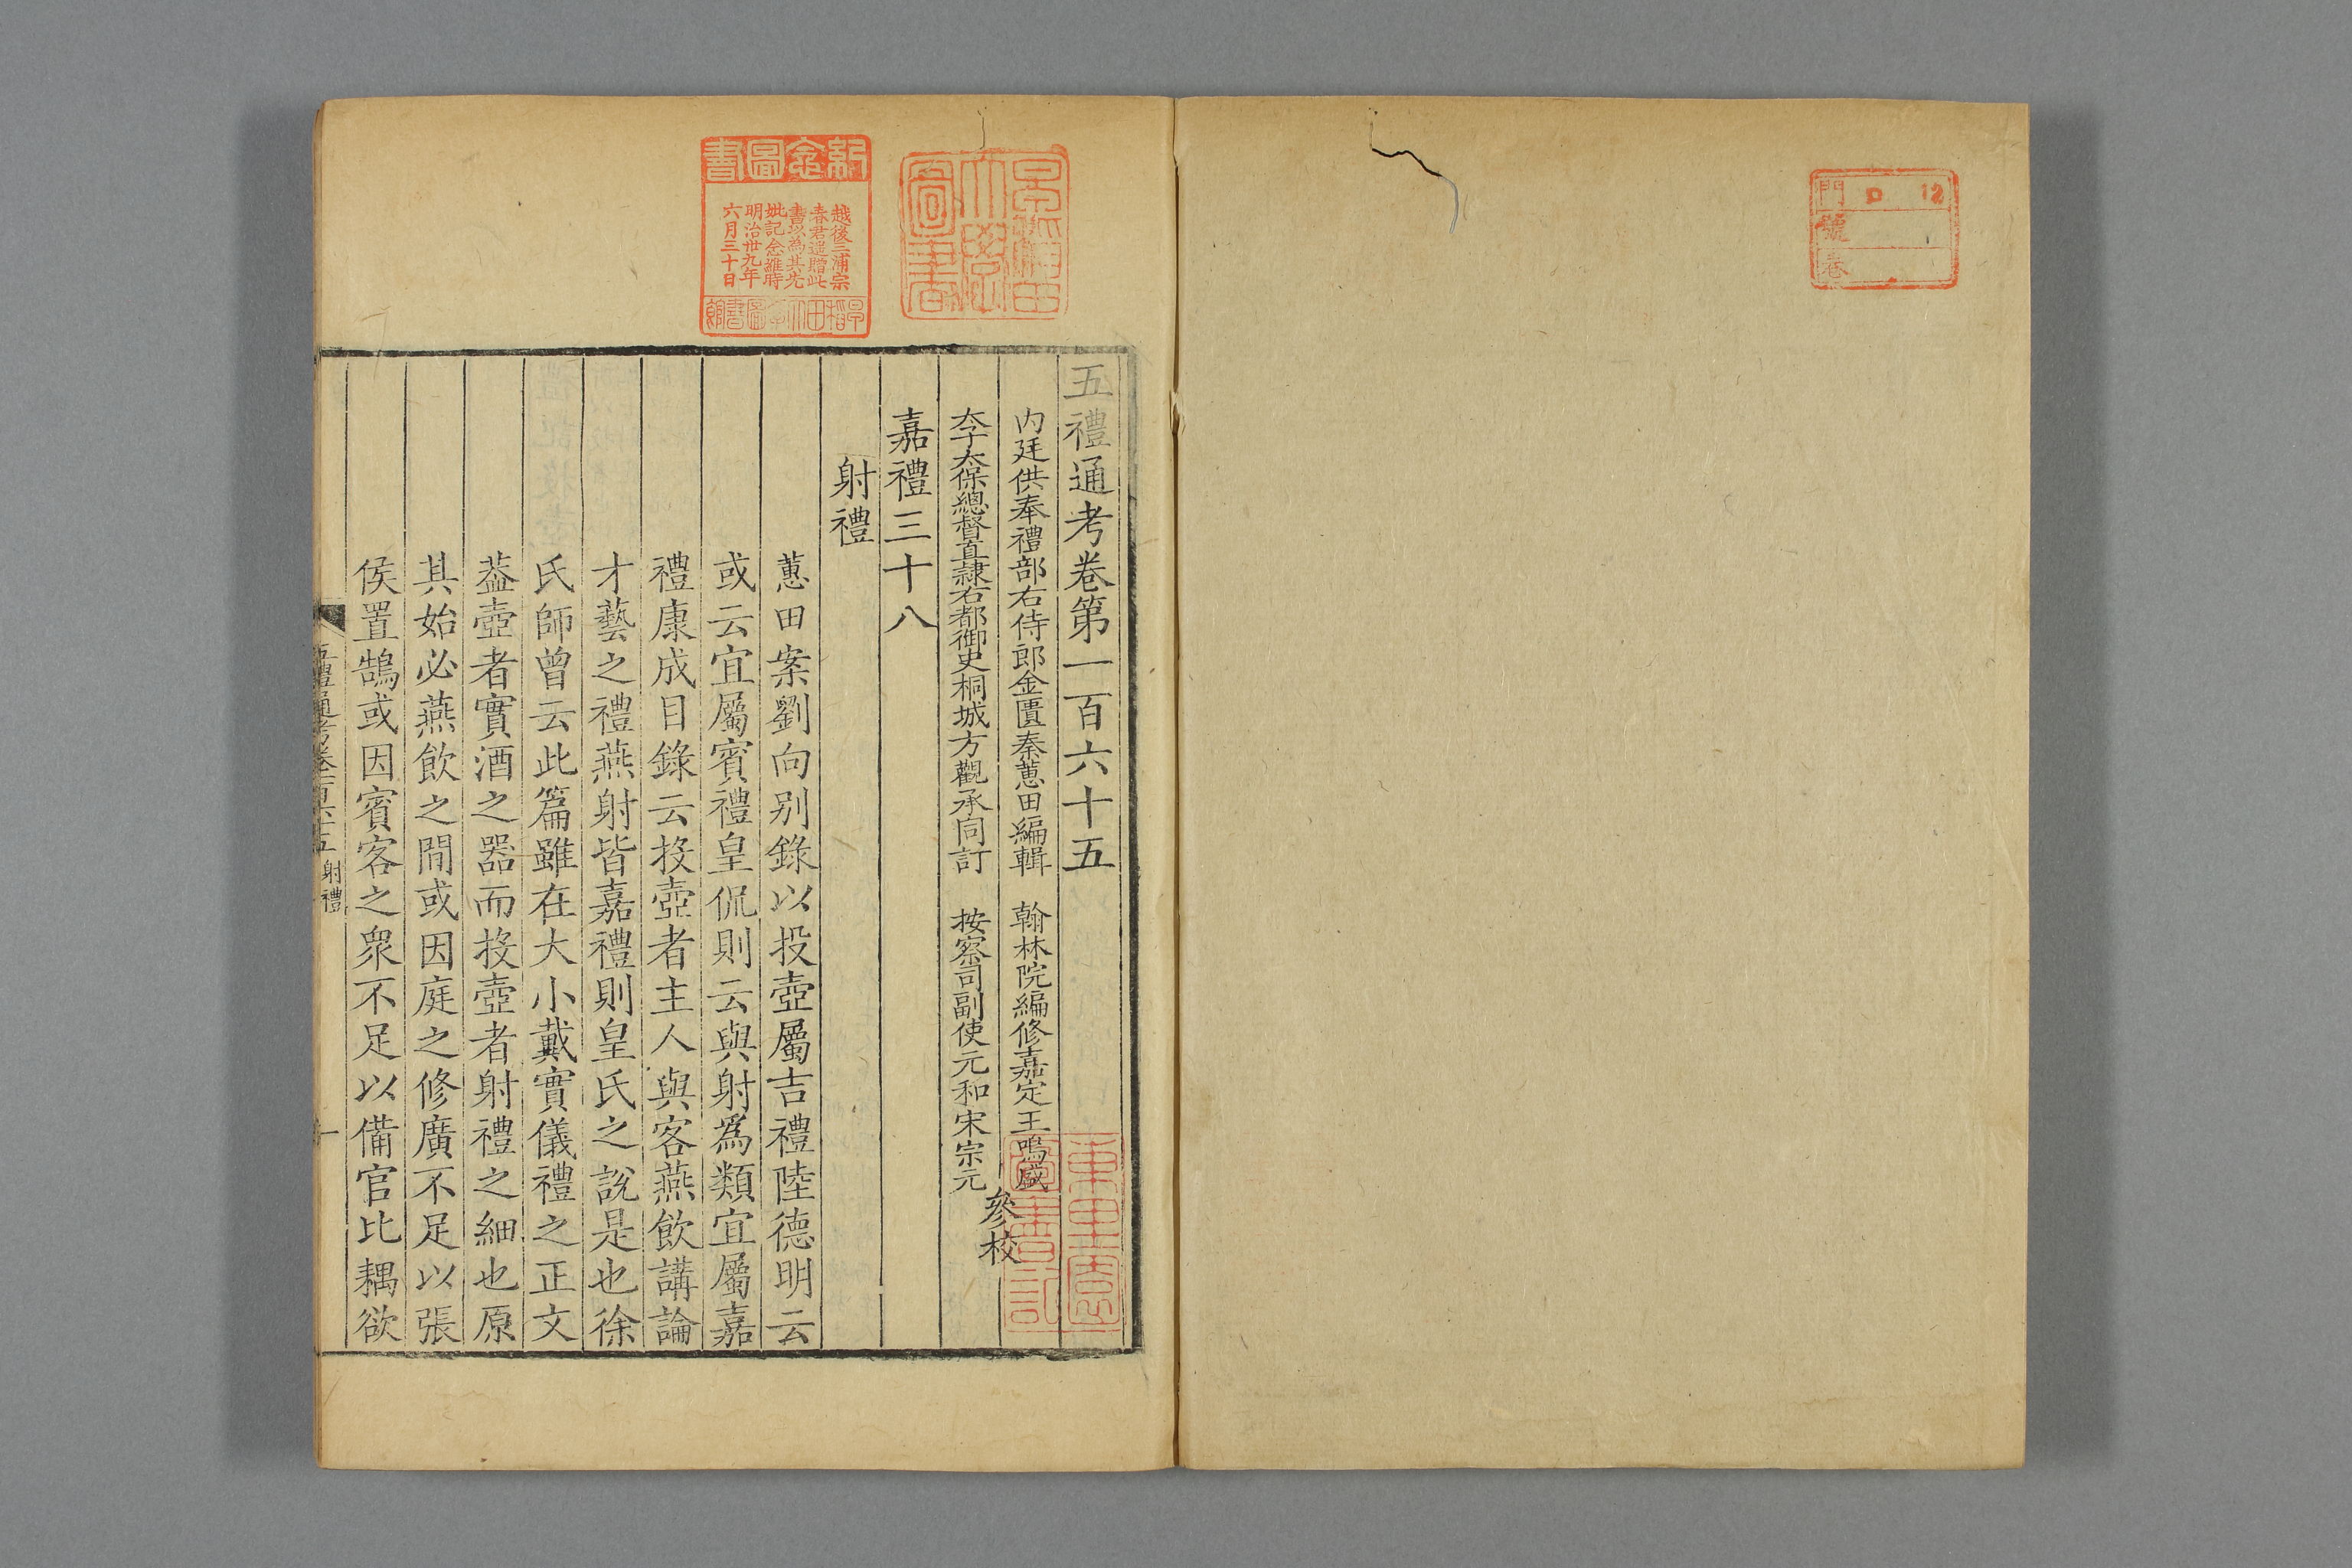 門 P 12
號
卷
早稻田大學圖書
紀念圖書
越後三浦宗
春君遥贈此
書以為其先
妣記念維時
明治卅九年
六月三十日
早稻田大學圖書館
五禮通考卷第一百六十五
內廷供奉禮部右侍郎金匱秦蕙田編輯 翰林院編修嘉定王鳴盛
太子太保總督直隷右都御史桐城方觀承同訂 按察司副使元和宋宗元
參校
嘉禮三十八
射禮
蕙田案劉向别錄以投壺屬吉禮陸德明云
或云宜屬賓禮皇侃則云與射為類宜屬嘉
禮康成目錄云投壺者主人與客燕飲講論
才藝之禮燕射皆嘉禮則皇氏之說是也徐
氏師曾云此篇雖在大小戴實儀禮之正文
葢壺者實酒之器而投壺者射禮之細也原
其始必燕飲之間或因庭之修廣不足以張
侯置鵠或因賓客之衆不足以備官比耦欲
五禮通考卷一百六十五 射禮 一